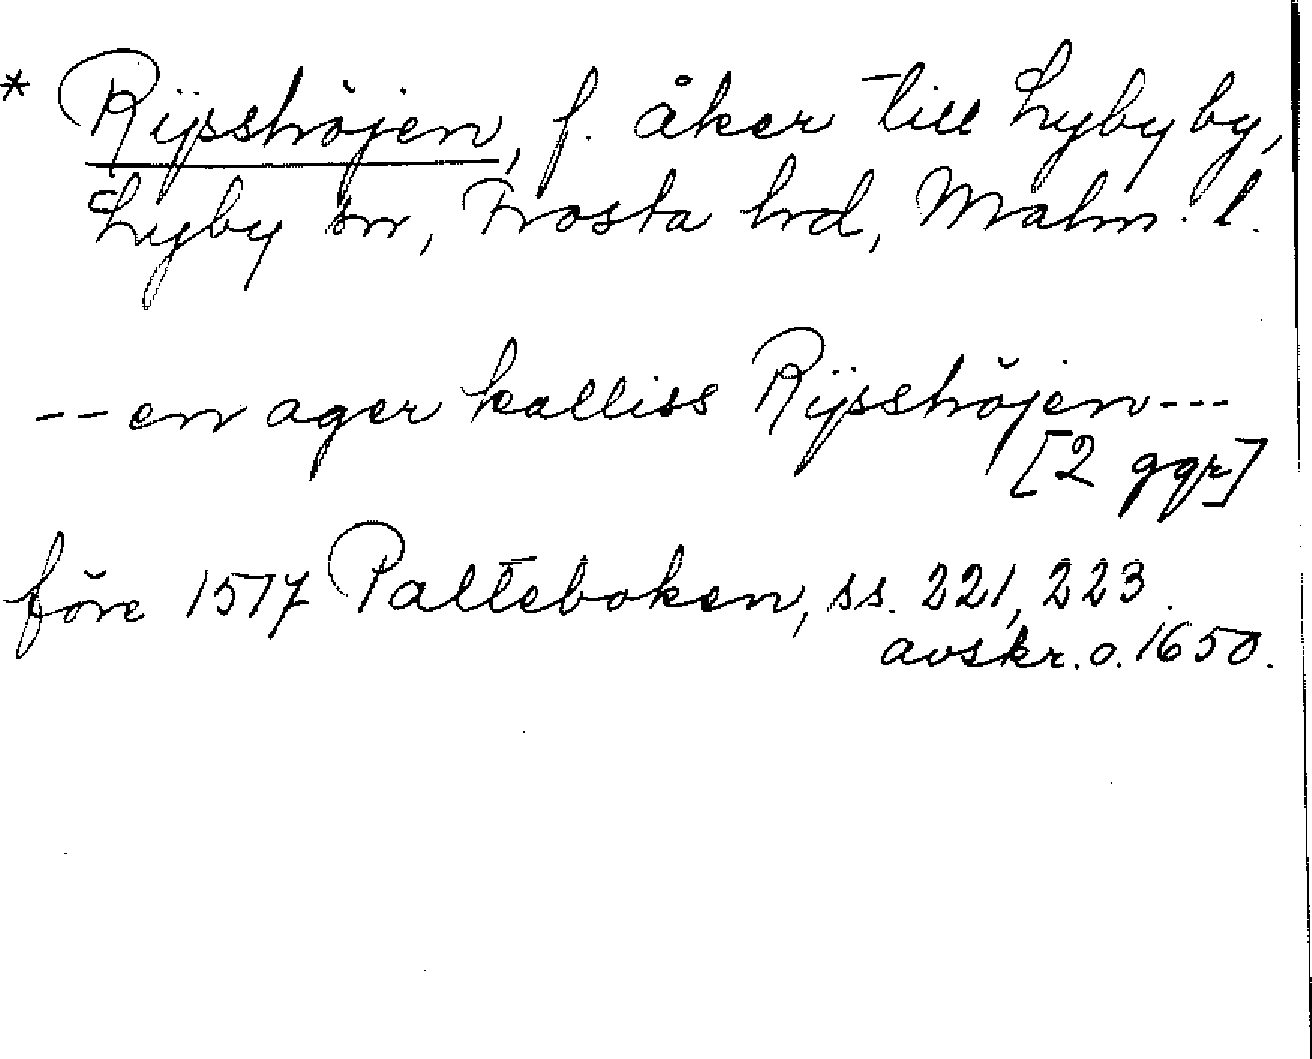 * Rijsshöjen, f. åker till Lyby by,
Lyby sn, Frosta hd, Malm. l.
-- en ager kalliss Rijsshöjen ---
[2 ggr]
före 1517 Palteboken, ss. 221, 223.
avskr. o. 1650.